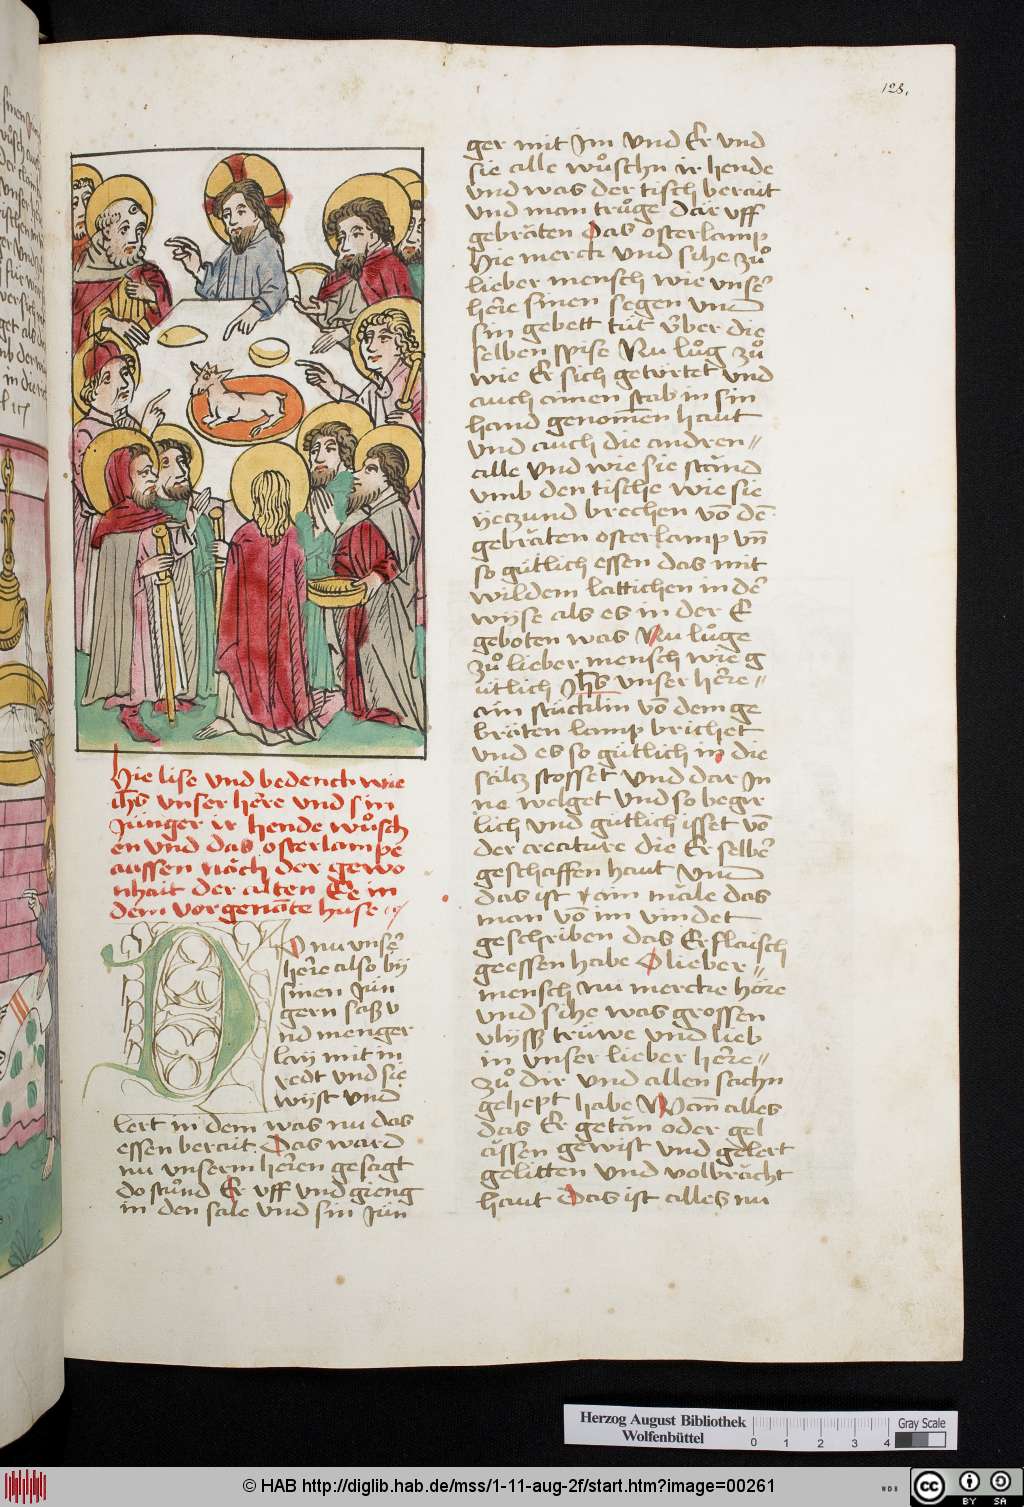 128.
Hie lise vnd bedenck wie
ih̄s vnser hēre vnd sin
Jünger ir hende wůsch
en vnd das osterlampe
aussen nāch der gewo
nhait der alten Ee in
dem vorgenāte huse
Do nu vnsē
hēre also by̋
sinen Jün
gern saß v
nd menger
lay̋ mit in
redt vnd sie
wyst vnd
lert in dem was nu das
essen berait. Das ward
nu vnserm hēren gesagt
do stůnd Er vff vnd gieng
in den sale vnd sin Jün
ger mit Im vnd Er vnd
sie alle wůschn ir hende
vnd was der tisch berait
vnd man trůge dār vff
gebrāten Das osterlamp
Hie merck vnd sihe zů
lieber mensch wie vnsē
hēre sinen segen vnd
sin gebett tüt v̈ber die
selben spise Nu lůg zů
wie Er sich getörtet vnd
auch ainen stab in sin
hand genom̄en haut
vnd auch die andren〃
alle vnd wie sie stānd
vmb den tische wie sie
ÿeczund brechen vō dē
gebrāten osterlamp vn̄
so gütlich essen das mit
wildem lattichen in dē
wy̋se als es in der E
geboten was Nu lůge
zů lieber mensch wie g
ütlich Jh̄s vnser hēre〃
ain stücklin vō dem ge
brāten lamp brichet
vnd es so gütlich in die
salcz stosset vnd dar In
ne welget vnd so begir
lich vnd gütlich isset vō
der creature die Er selbē
geschaffen haut vnd
das ist ain māle das
man vō im vindet
geschriben das Er flaisch
geessen habe O lieber〃
mensch nu mercke höre
vnd sihe was grossen
vlyß trüwe vnd lieb
in vnser lieber hēre〃
zů dir vnd allen sachn
gehept habe Wan̄ alles
das Er getān oder gel
āssen gewist vnd gelert
gelitten vnd volbrācht
haut Das ist alles nu
Herzog August Bibliothek
Wolfenbüttel
0 1 2 3 4
Gray Scale
© HAB http://diglib.hab.de/mss/1-11-aug-2f/start.htm?image=00261
WDB
cc BY SA